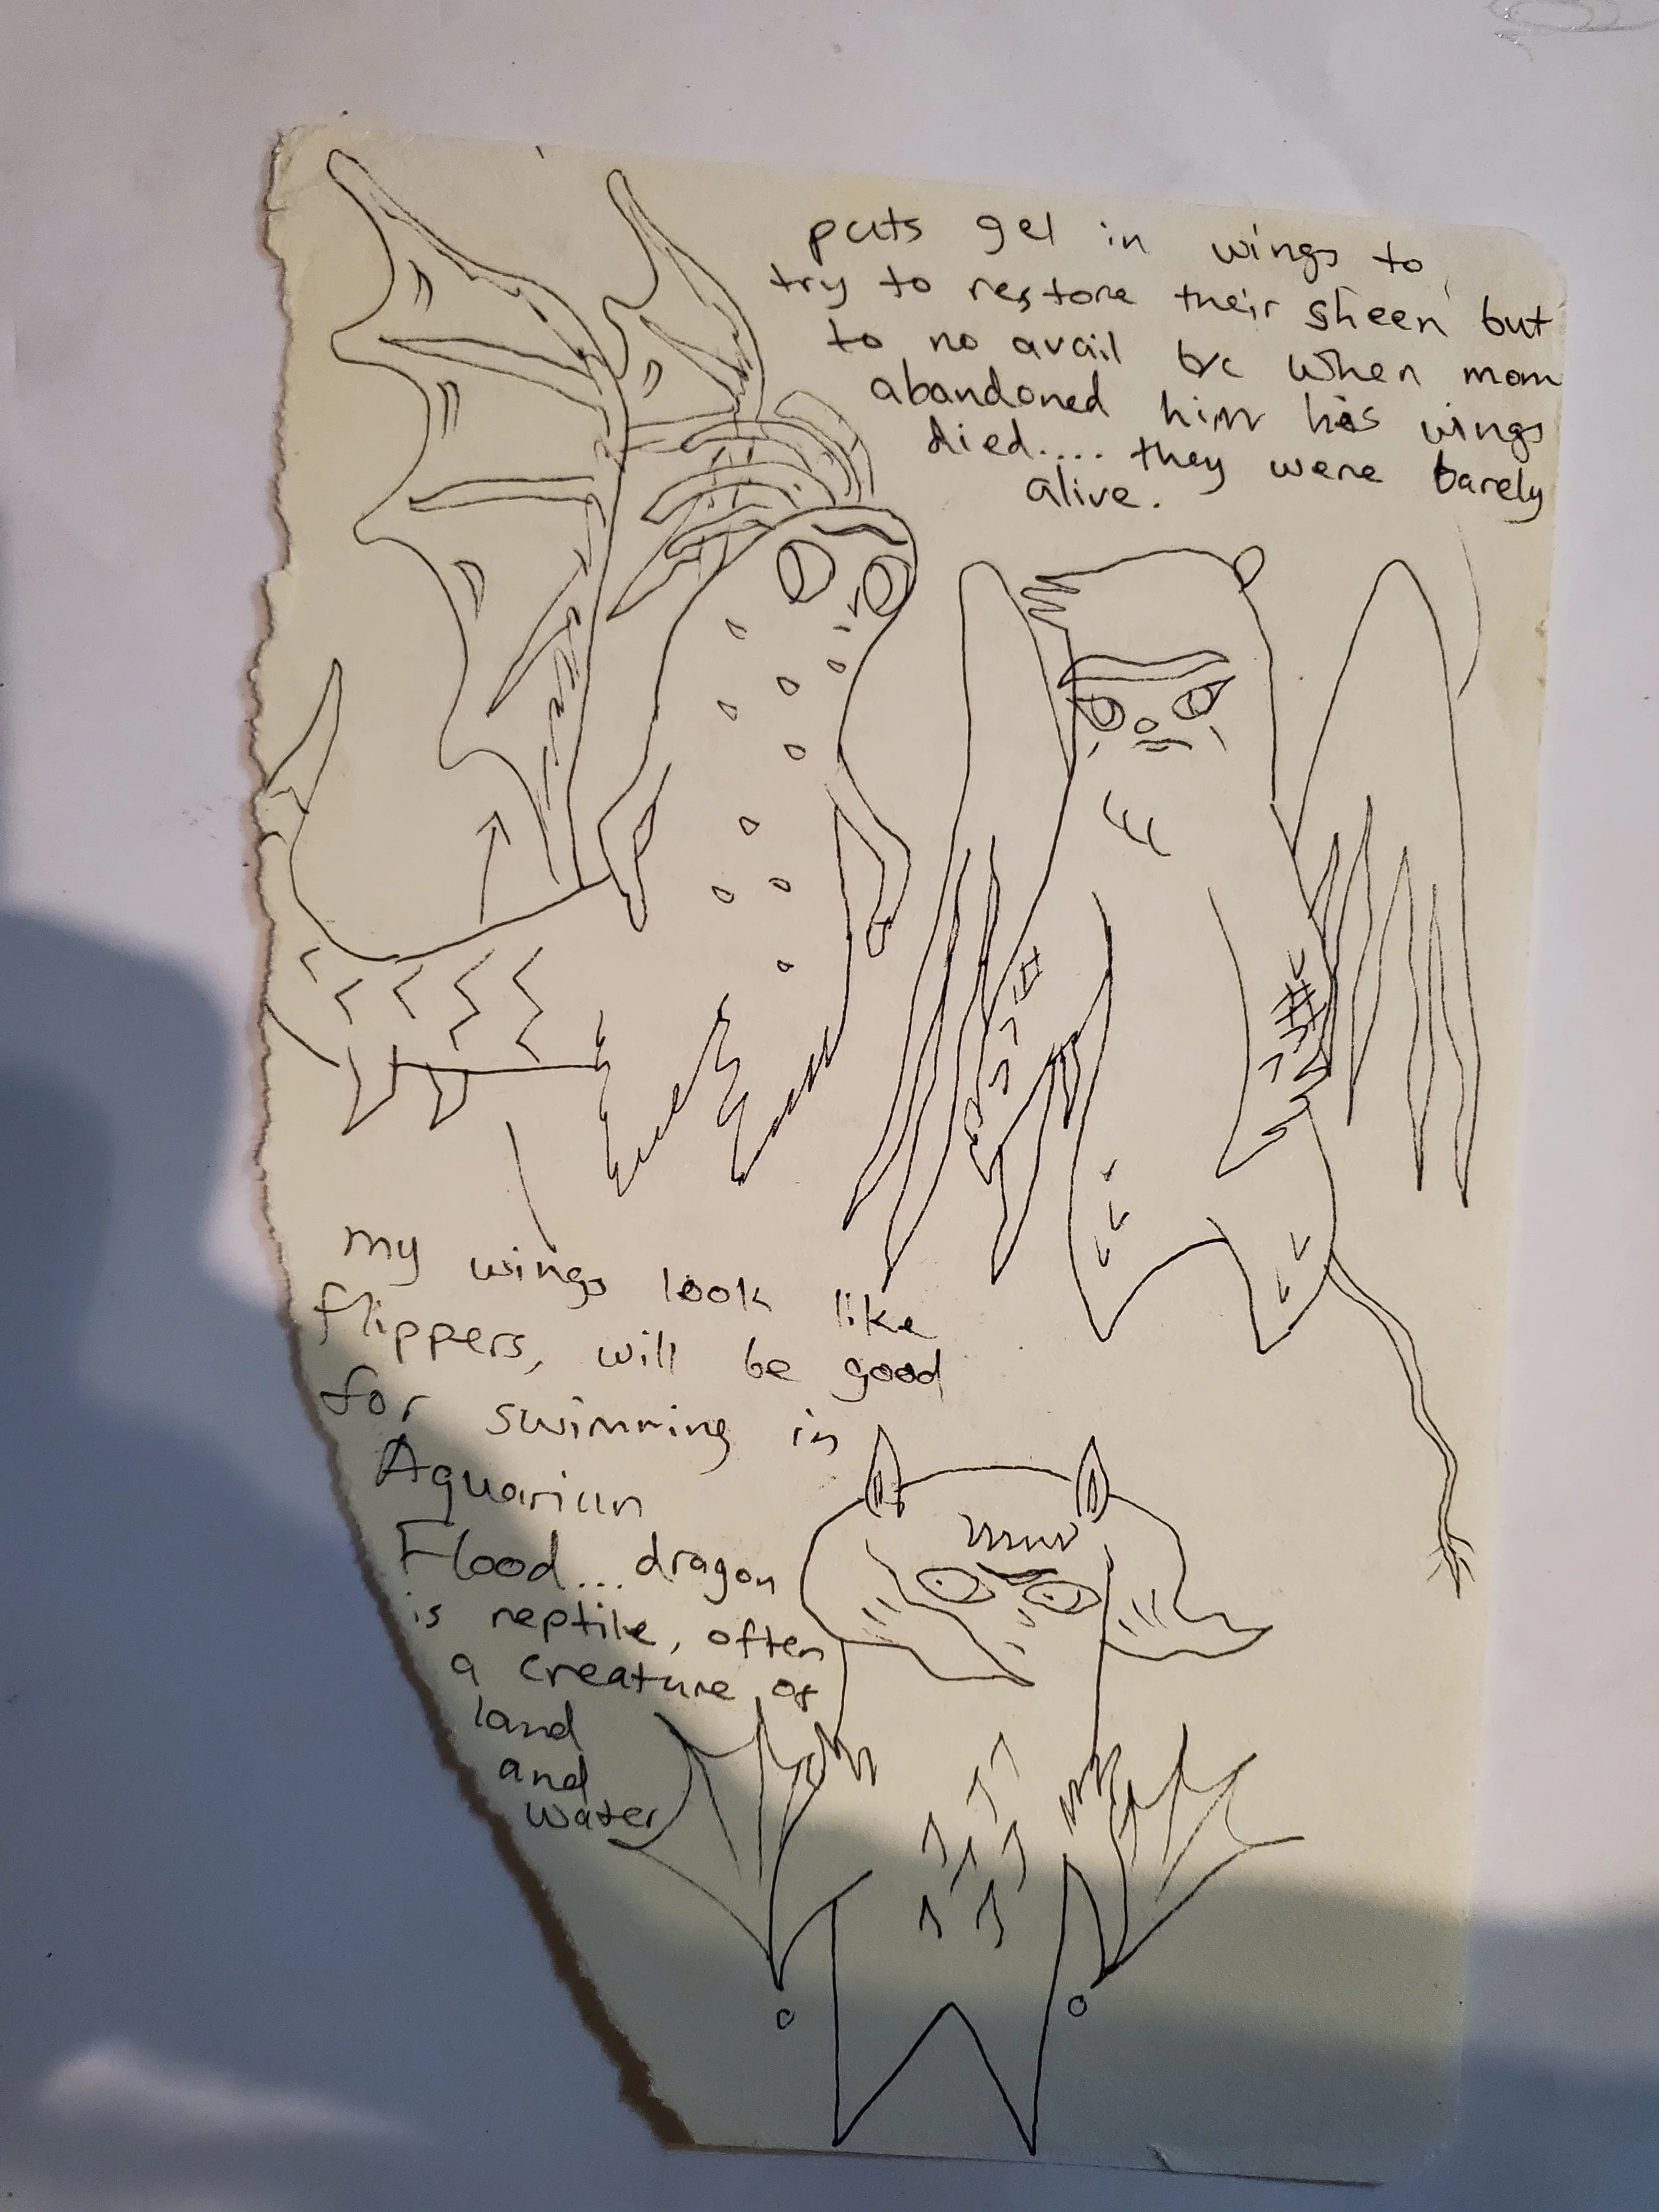 puts gel in wings to
try to restore their sheen but
to no avail bc when mom
abandoned him his wings
died.... they were barely
alive.
my wings look like
flippers, will be good
for swimming in
Aquarian
Flood... dragon
is reptile, often
a creature of
land
and
water